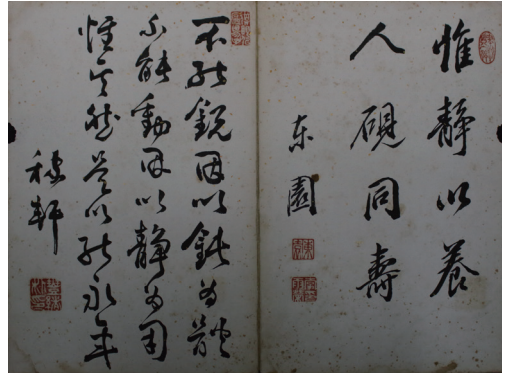 惟靜以養
人硯同壽
東園
不能銳因以鈍為體
不能動因以靜為用
惟其然是以能永年
穄軒